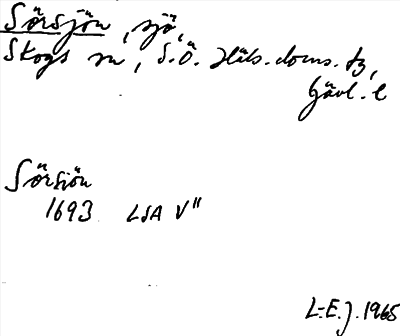 Sörsjön, sjö,
Skogs sn, S.Ö. Häls. doms. tg,
Gävl. l
Sörsiön
1693 LSA V"
L-E. J. 1965